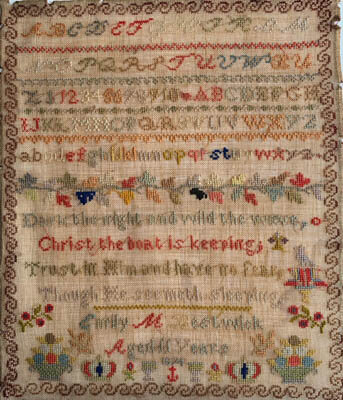 ABCDEF
PQRSTUVWXY
ABCDEFGH
IJK QRSTUVWXYZ
abcdefghijklmnopqrstuvwxyz
Dark the night and wild the wave,
Christ the boat is keeping;
Trust in Him and have no fear,
Though He seemeth sleeping.
Emily M
Aged 11 Years